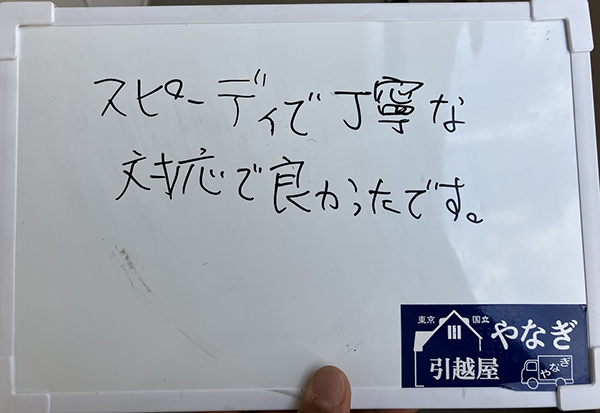 スピーディで丁寧な
対応で良かったです。
東京 国立
やなぎ
引越屋
やなぎ